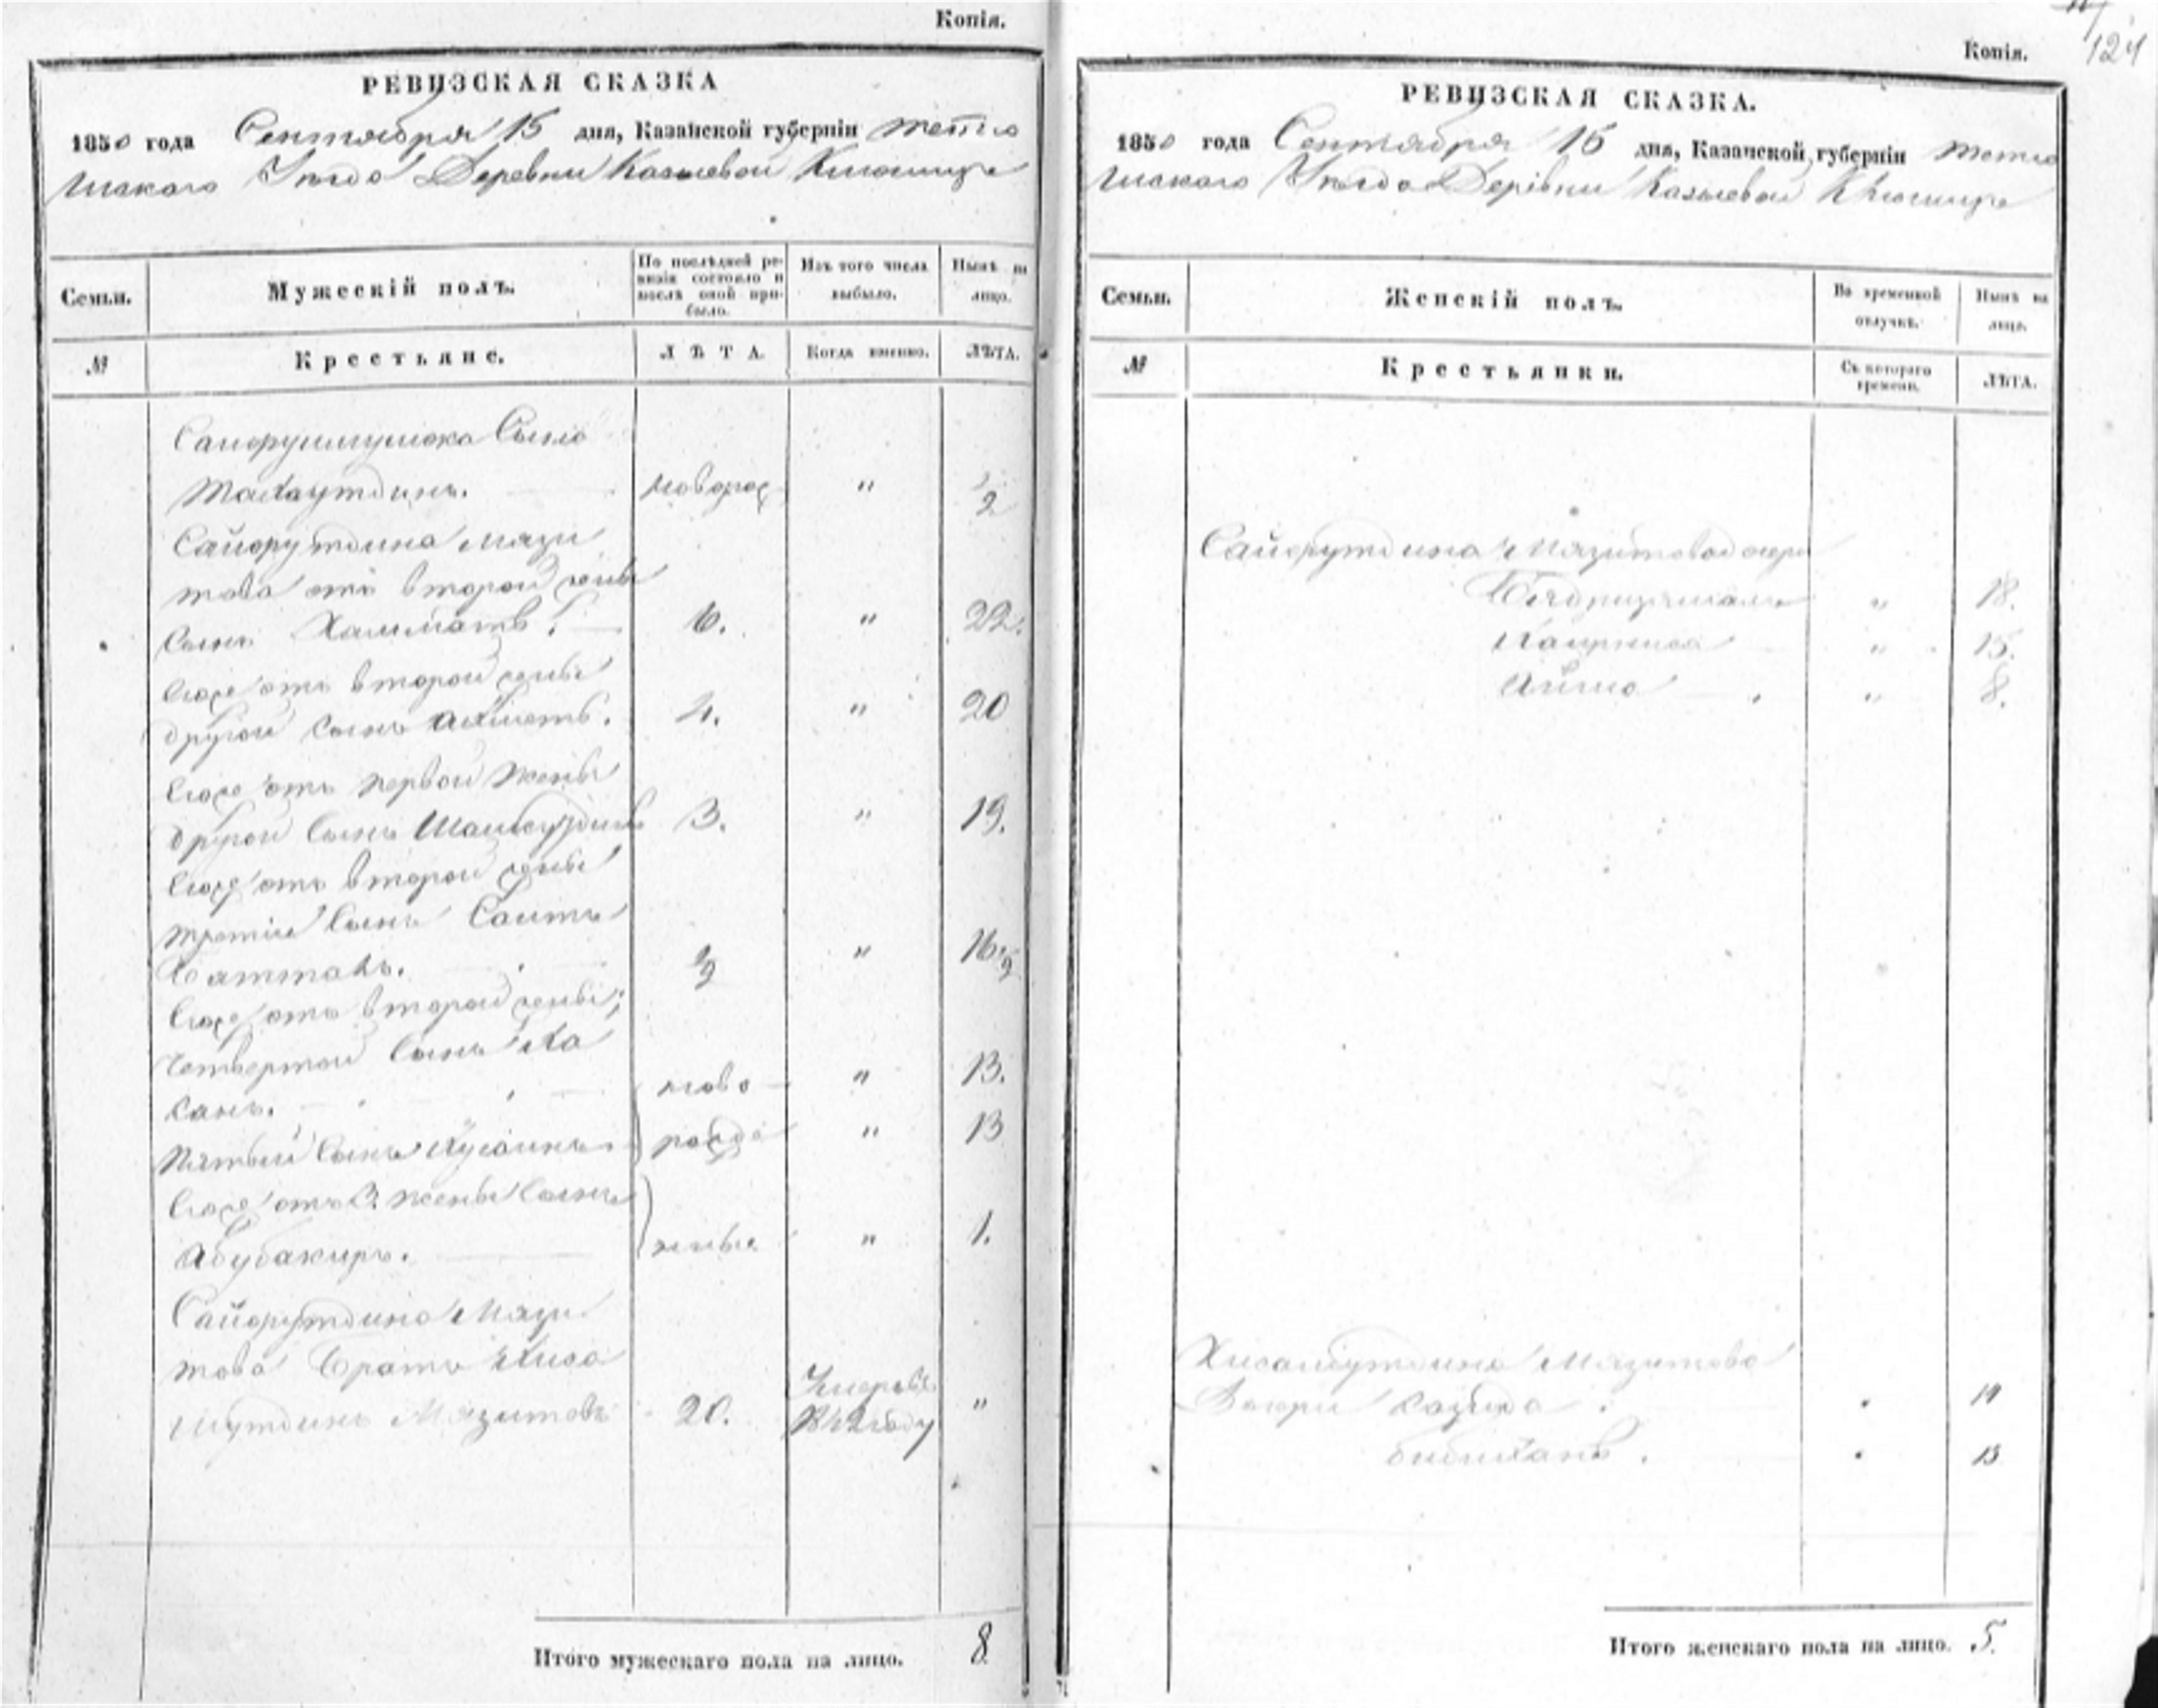 Копія.
РЕВИЗСКАЯ СКАЗКА
1850 года Сентября 15 дня, Казанской губерніи Тетю
шскаго Уѣзда Деревни Казыевой Кнюшира
Семьи.
Мужескій полъ.
По послѣдней ре-
визіи состояло и
послѣ оной при-
было.
Изъ того числа
выбыло.
Нынѣ на
лицо.
№
Крестьяне.
ЛѢТА.
Когда именно.
ЛѢТА.
Сына
новорож
"
1/2
Сайфутдина Мязи
това отъ второй жены
сынъ
6.
"
22.
Его же отъ второй жены
другой сынъ Ахметъ.
4.
"
20
Его же отъ первой жены
другой сынъ
3.
"
19.
Его же отъ второй жены
третій сынъ Саитъ
Батталъ.
1/2
"
16 1/2
Его же отъ второй жены;
четвертой сынъ Ха
санъ.
ново
"
13.
Пятый сынъ Хусаинъ
рожде
"
13
Его же отъ 3. жены сынъ
Абубакиръ.
нные
"
1.
Сайфутдина Мязи
това братъ Хиса
мутдинъ Мязитовъ
20.
Умеръ въ
1842 году
"
Итого мужескаго пола на лицо.
8
124
Копія.
РЕВИЗСКАЯ СКАЗКА.
1850 года Сентября 15 дня, Казанской губерніи Тетю
шскаго Уѣзда Деревни Казыевой Кнюшира
Семьи.
Женскій полъ.
Во временной
отлучкѣ.
Нынѣ на
лицо.
№
Крестьянки.
Съ котораго
времени.
ЛѢТА.
Сайфутдина Мязитова дочери
Бядризямалъ
"
18.
"
15.
"
8.
Хисамутдина Мязитова
дочери
14
Бибиханъ.
13
Итого женскаго пола на лицо. 5.